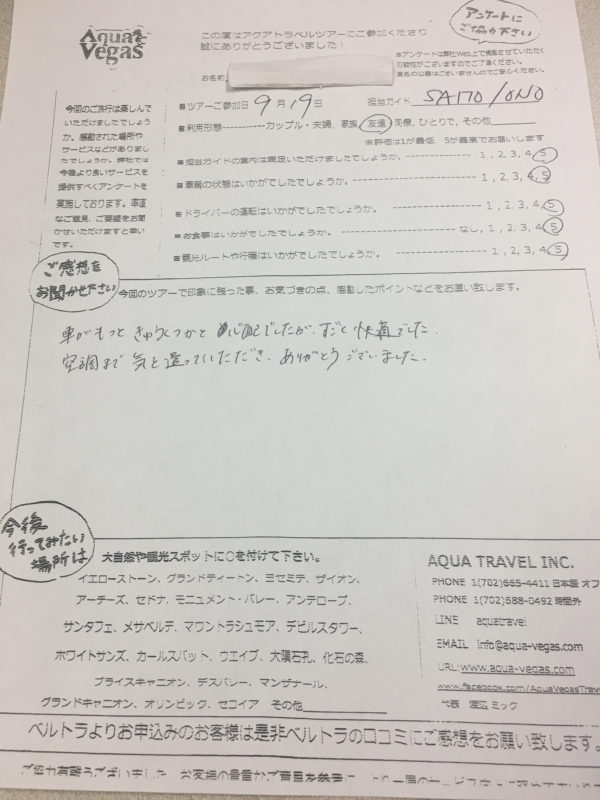 Aqua Vegas
この度はアクアトラベルツアーにご参加くださり
誠にありがとうございました！
アンケートに
ご協力下さい
本アンケートは弊社Web上で掲載させていただく
可能性がございますのでご了承ください。
実名の公表はございませんのでご安心ください。
お名前
今回のご旅行は楽しんで
いただけましたでしょう
か。感動された場所や
サービスなどがありまし
たでしょうか。弊社では
今後より良いサービスを
提供すべくアンケートを
実施しております。率直
なご意見、ご要望をお聞
かせいただけますと幸い
です。
■ツアーご参加日 9月19日 担当ガイド SAITO/ONO
■利用形態-----------カップル・夫婦, 家族, 友達, 同僚, ひとりで, その他
※評価は1が最低 5が最高でお願いします
■担当ガイドの案内は満足いただけましたでしょうか。---------------- 1, 2, 3, 4, 5
■車両の状態はいかがでしたでしょうか。---------------- 1, 2, 3, 4, 5
■ドライバーの運転はいかがでしたでしょうか。---------------- 1, 2, 3, 4, 5
■お食事はいかがでしたでしょうか。---------------- なし, 1, 2, 3, 4, 5
■観光ルートや行程はいかがでしたでしょうか。---------------- 1, 2, 3, 4, 5
ご感想を
お聞かせ下さい
今回のツアーで印象に残った事、お気づきの点、感動したポイントなどをお願い致します。
車がもっときゅうくつかと心配でしたが、すごく快適でした。
空調まで気を遣っていただき、ありがとうございました。
今後
行ってみたい
場所は
大自然や観光スポットに○を付けて下さい。
イエローストーン、グランドティートン、ヨセミテ、ザイオン、
アーチーズ、セドナ、モニュメント・バレー、アンテロープ、
サンタフェ、メサベルデ、マウントラシュモア、デビルスタワー、
ホワイトサンズ、カールスバット、ウエイブ、大隕石孔、化石の森、
ブライスキャニオン、デスバレー、マンザナール、
グランドキャニオン、オリンピック、セコイア その他
AQUA TRAVEL INC.
PHONE 1(702)665-4411 日本語 オフ
PHONE 1(702)688-0492 時間外
LINE aquatravel
EMAIL info@aqua-vegas.com
URL:www.aqua-vegas.com
www.facebook.com/AquaVegasTrav
代表 渡辺 ミック
ベルトラよりお申込みのお客様は是非ベルトラの口コミにご感想をお願い致します。